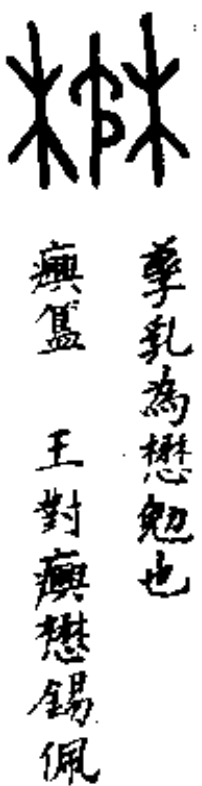 楙
孳乳為懋勉也
𤼈簋　王對𤼈懋錫佩